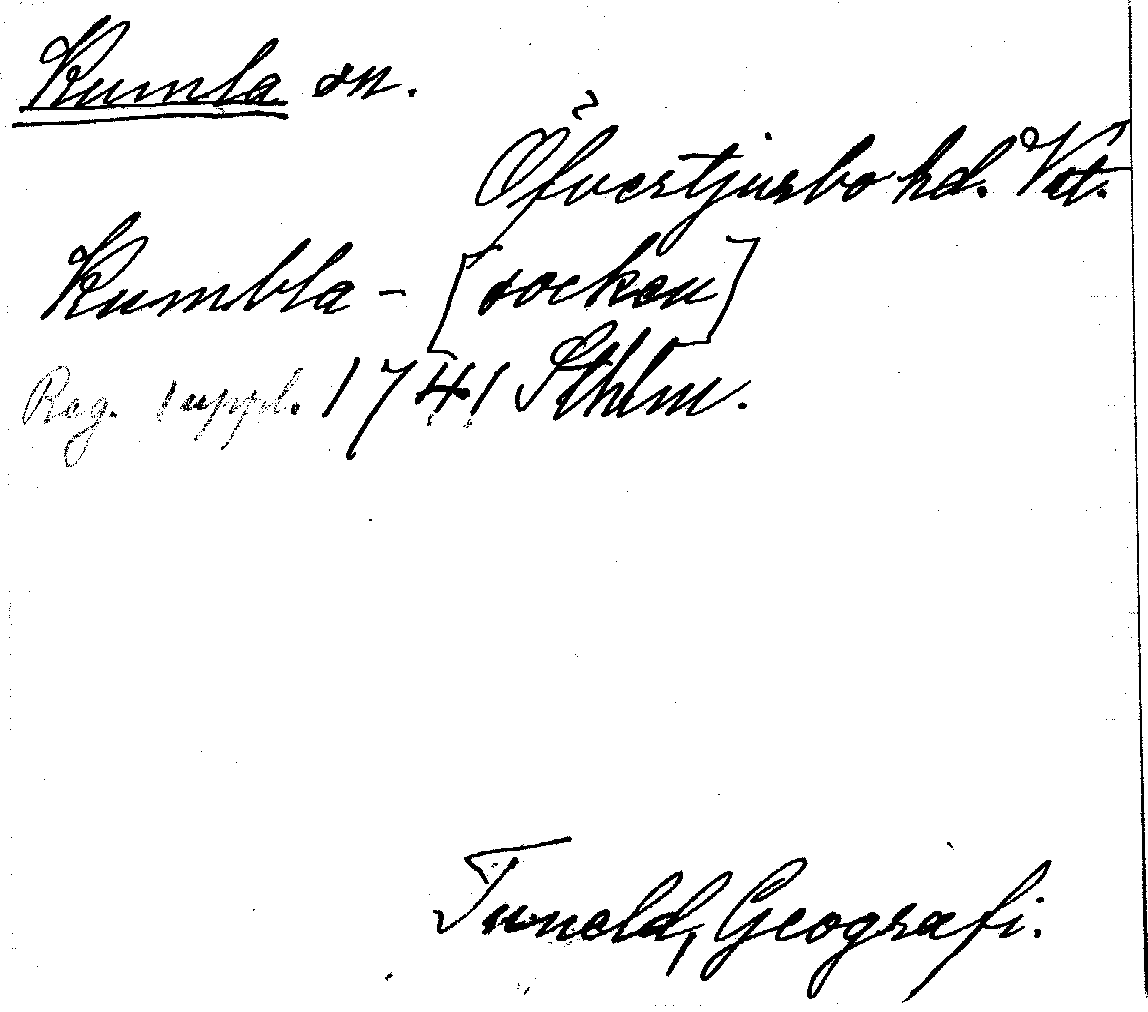 Kumla sn.
Öfvertjurbo hd. Vst.
Kumbla - [socken]
Reg. 1 uppl. 1741 Sthlm.
Tuneld, Geografi.